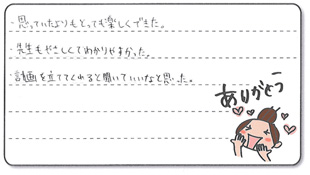 ・思っていたよりもとっても楽しくできた。
・先生もやさしくてわかりやすかった。
・計画を立ててくれると聞いていいなと思った。
ありがとう